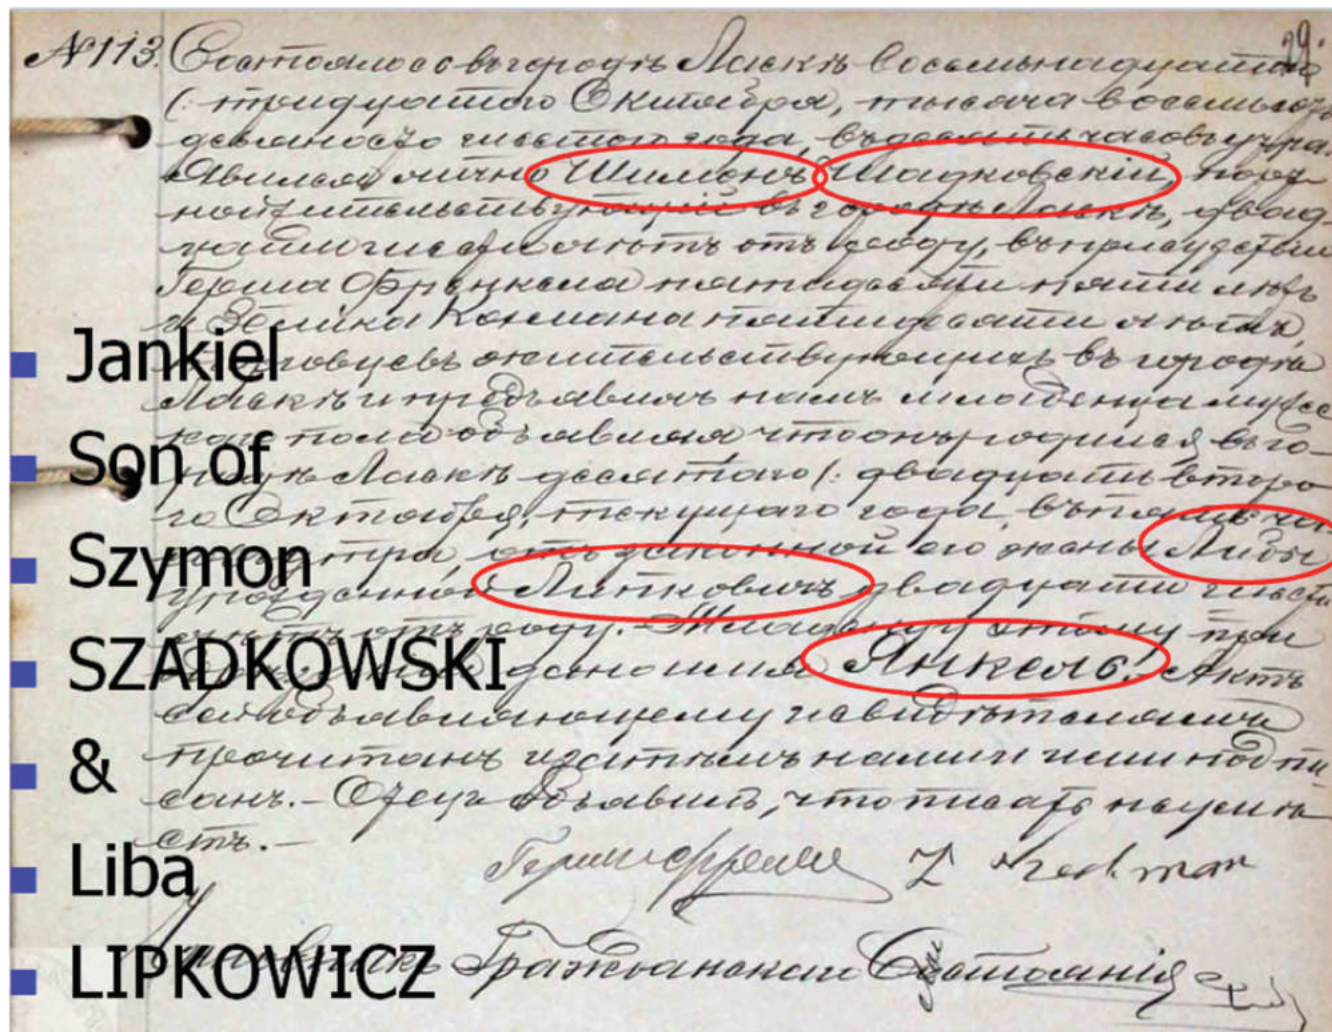 29.
№113. Состоялось въ городѣ Ласкѣ восемьнадцатаго
(: тридцатаго Октября, тысяча восемьсотъ
девяносто шестого года, въ десять часовъ утра.
Явился лично Шимонъ Шадковскій,
жительствующій въ городѣ Ласкѣ, двад-
цати шести лѣтъ отъ роду, въ присутствіи
Герша Френкеля пятидесяти пяти лѣтъ
и Зелика пятидесяти лѣтъ,
Jankiel
жительствующихъ въ городѣ
Ласкѣ и предъявилъ намъ младенца мужес-
каго пола объявляя что онъ родился въ го-
Son of
Ласкѣ десятаго (: двадцати второ-
го Октября, текущаго года, въ ча-
Szymon
утра, отъ законной его жены Либы
урожденной Липковичъ двадцати шести
лѣтъ отъ роду. Младенцу этому при
SZADKOWSKI
дано имя Янкель. Актъ
сей объявляющему и свидѣтелямъ
&
прочитанъ и затѣмъ нами и ими подпи-
санъ. – Отецъ объявилъ, что писать неумѣ-
етъ. –
Liba
Гражданскаго Состоянія
LIPKOWICZ